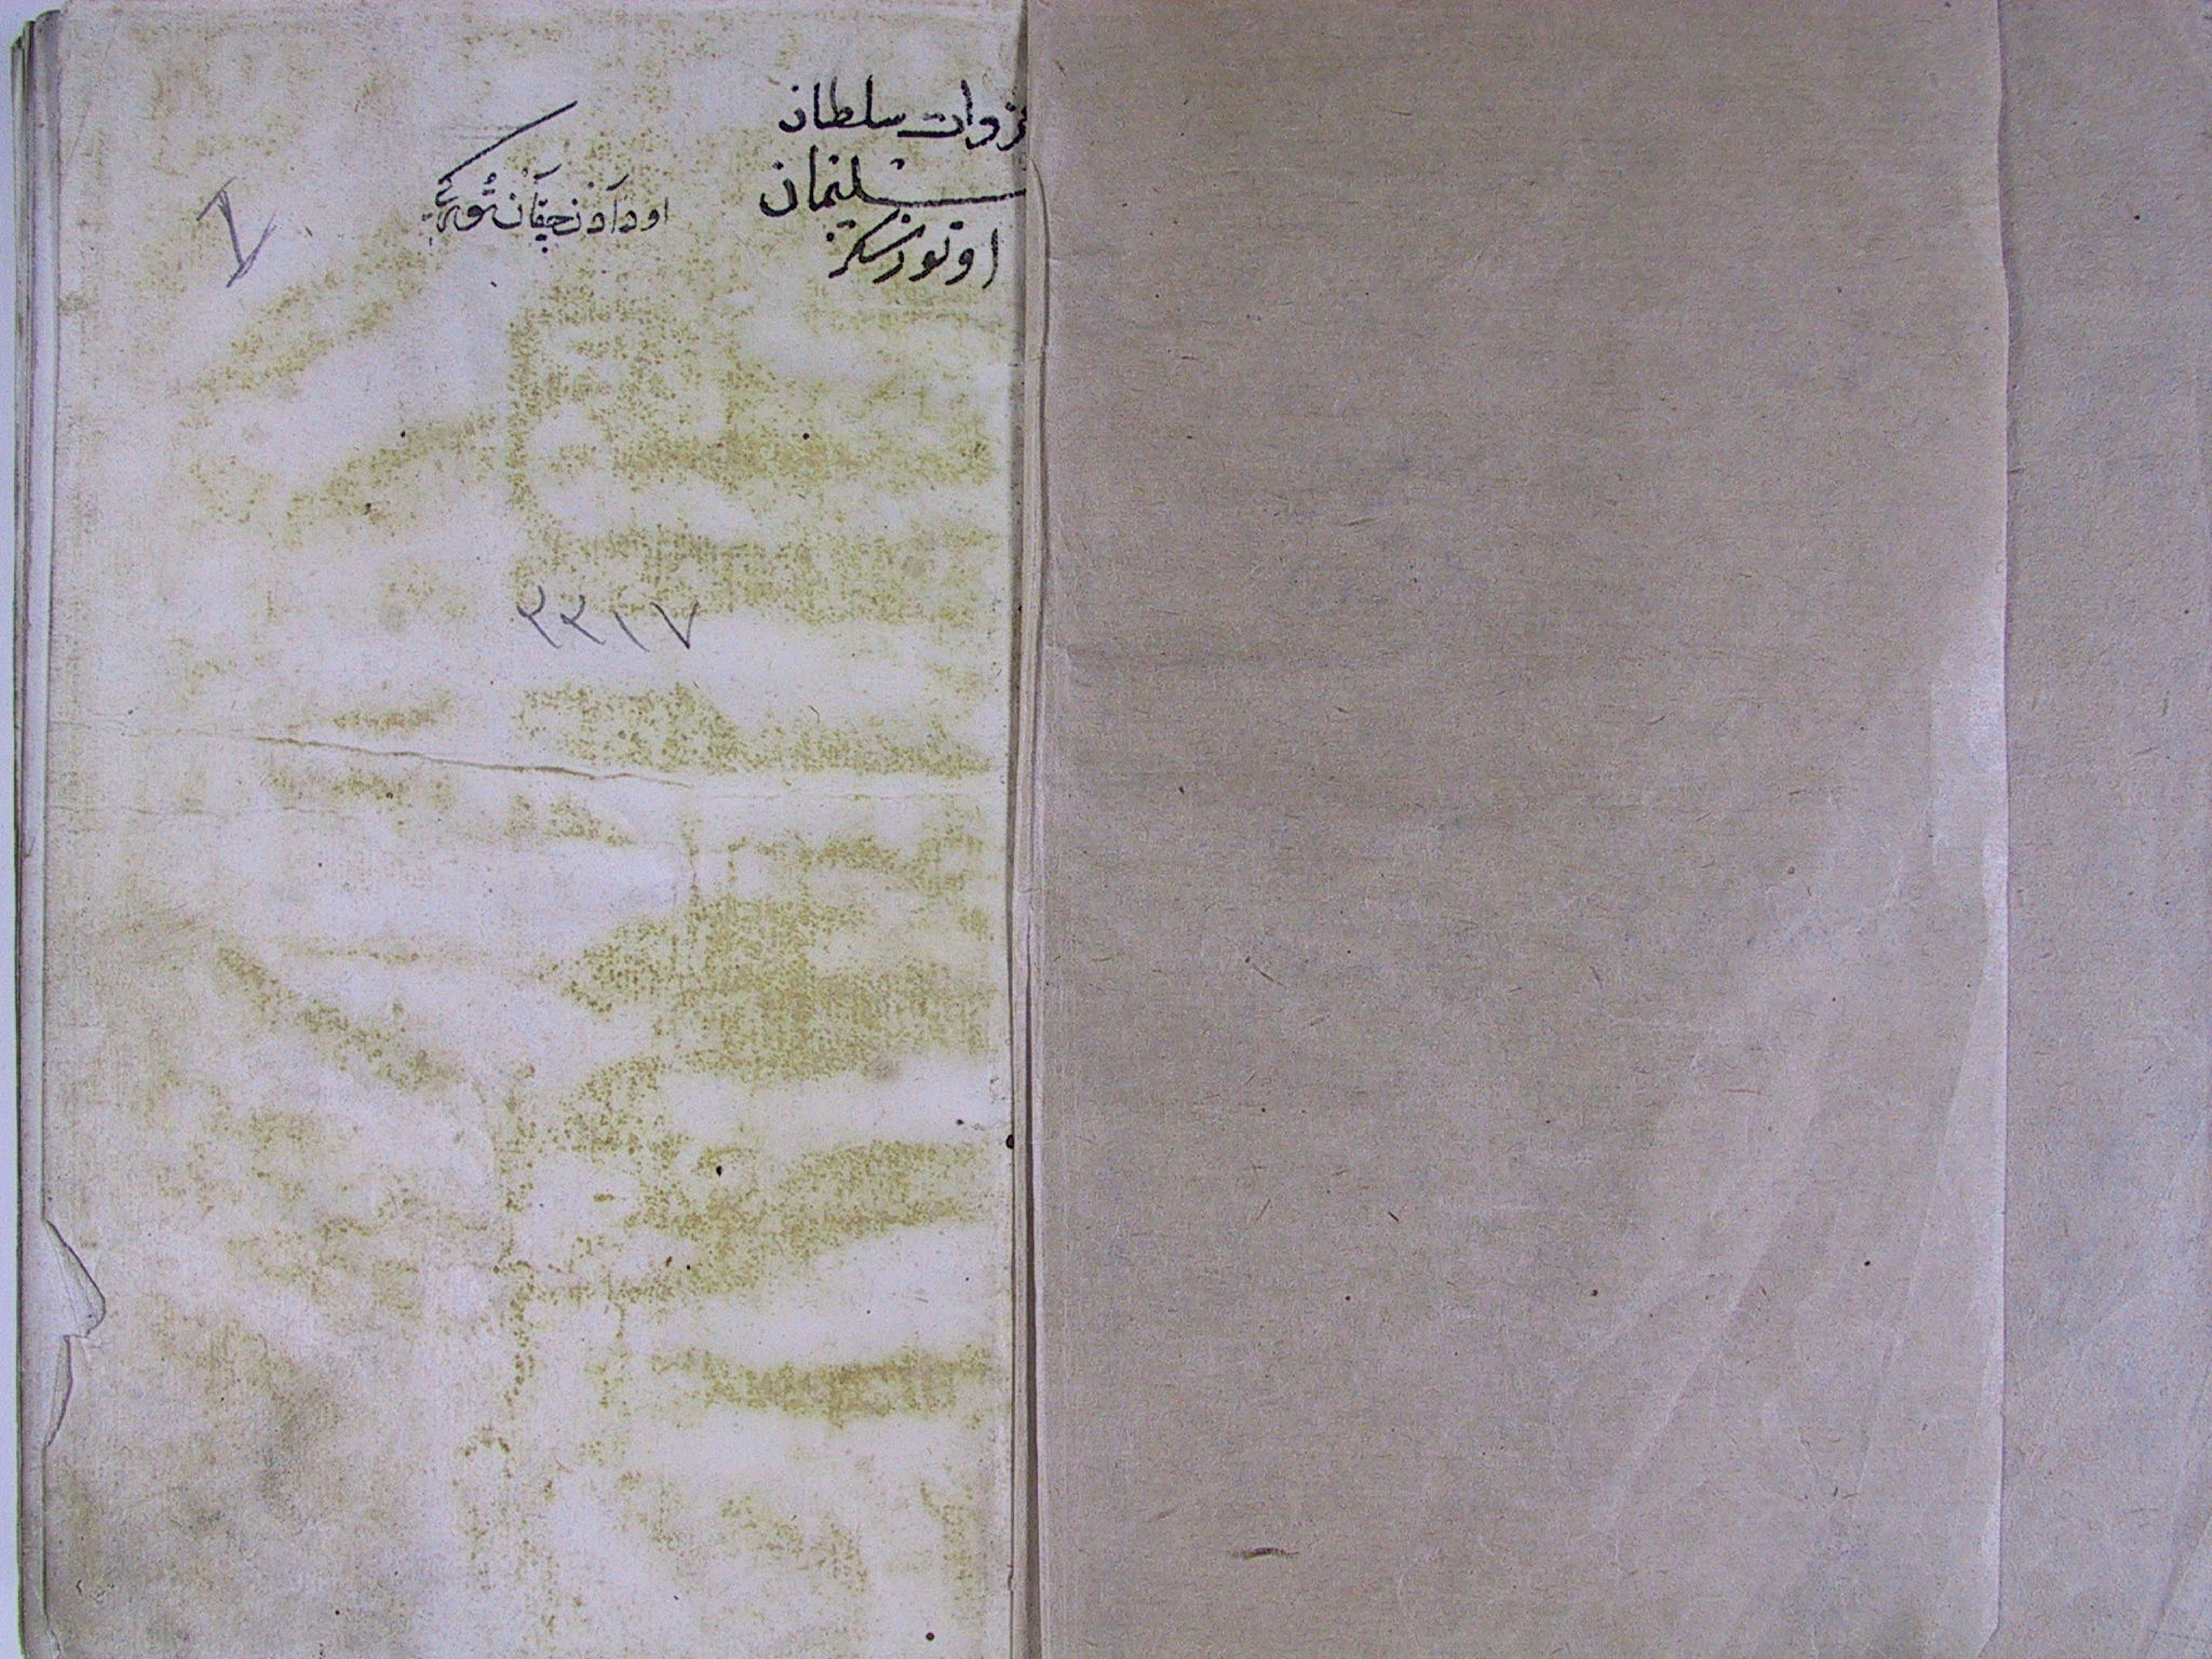 غزوات سلطان
سلیمان
اوتوز سکز
اودادن چقان
٢٢١٧